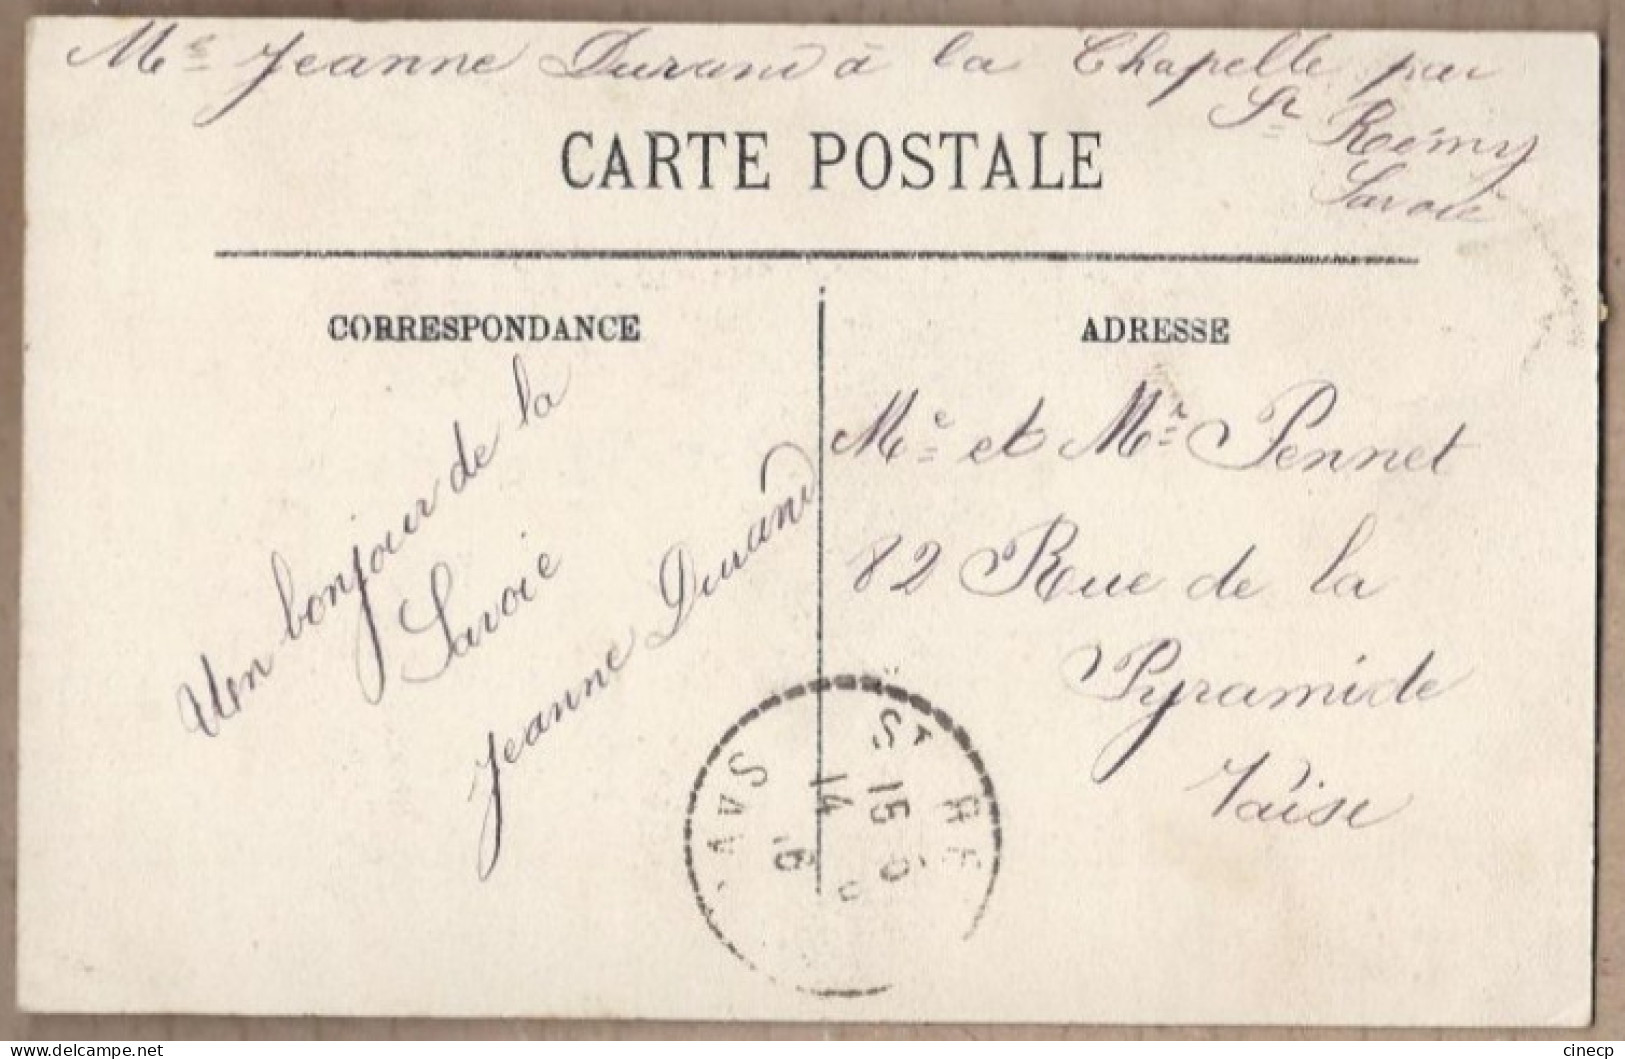 Me Jeanne Durand à la Chapelle par
St Rémy
Savoie
CARTE POSTALE
CORRESPONDANCE
ADRESSE
Un bonjour de la
Savoie
Jeanne Durand
Me et Mr Pennet
82 Rue de la
Pyramide
Vaise
ST RE
15
14
SAV
delcampe.net
cinecp